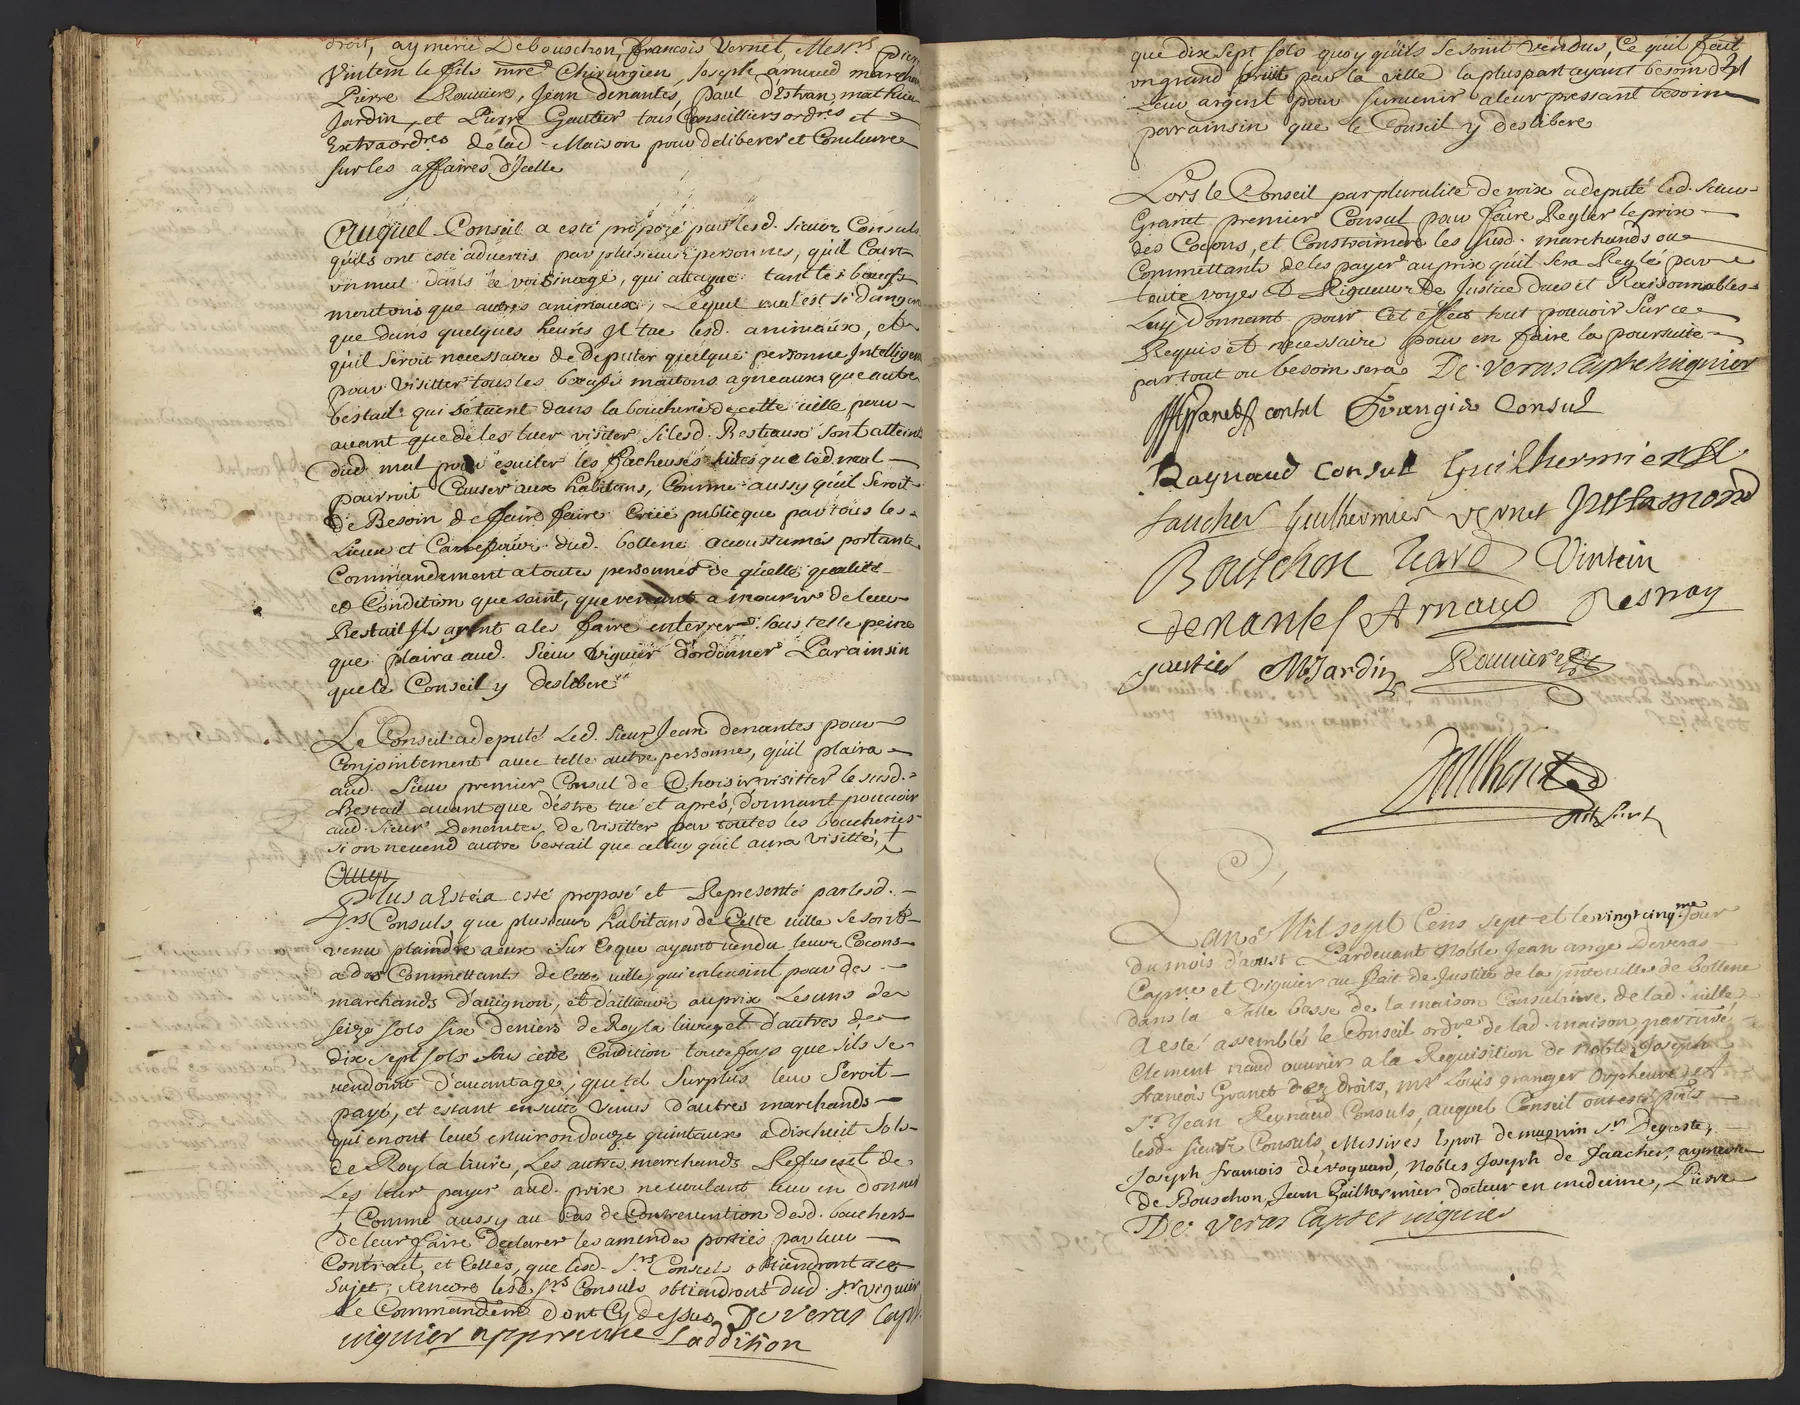 droit, aymeric Debouschon, francois Vernet, Messrs pierre
Vintem le fils mre Chirurgien, Joseph arnaud marchand
Pierre Rouviere, Jean denantes, paul d'Estran, mathieu
Jardin, et Pierre Gautier tous Conseilliers ordres et
Extraordres de lad. Maison pour deliberer et Conclurre
sur les affaires d'Jcelle
Auquel Conseil a esté propozé par lesd. sieurs Consuls
quils ont esté advertis par plusieurs personnes, qu'il Court
un mal dans le voisinage, qui attaque tant les boeufs
moutons que autres animaux, Lequel mal est si dangereux
que dans quelques heures Jl tue lesd. animaux, et
qu'il seroit necessaire de deputer quelque personne Intelligente
pour visitter tous les boeufs moutons agneaux que autre
bestail qui se tuent dans la boucherie de cette ville pour
avant que de les tuer visiter si lesd. Bestiaux sont atteints
dud. mal pour esviter les facheuses suites que led. mal
pourroit Causer aux habitans, Comme aussy qu'il seroit
de Besoin de faire faire Criée publicque par tous les
Lieux et Carrefours dud. bollene accoustumés portante
Commandement a toutes personnes de quelle qualité
et Condition que soint, que venant a mourir de leur
Bestail Jls ayent a les faire enterrer sous telle peine
que plaira aud. sieur viguier d'ordonner Parainsin
que le Conseil y deslibere
Le Conseil a deputé Led. sieur Jean denantes pour
Conjointement avec telle autre personne, qu'il plaira
aud. sieur premier Consul de Choisir, visitter le susd.
Bestail avant que d'estre tué et aprés, donnant pouvoir
aud. sieur Denantes de visitter par toutes les boucheries
si on ne vend autre bestail que celluy qu'il aura visitté, +
Plus a esté proposé et Representé par lesd.
srs Consuls, que plusieurs habitans de Cette ville se sont
venu plaindre a eux sur ce que ayant vendu leurs Cocons
a des Commettants de Cette ville, qui en levoint pour des
marchands d'avignon, et d'ailleurs au prix Les uns de
seize sols six deniers de Roy la livre, et d'autres de
dix sept sols sous cette Condition toutefoys que s'ils se
vendoint d'avantage, que tel surplus leur seroit
payé, et estant ensuite venus d'autres marchands
qui en ont levé environ douze quintaux a dixhuit sols
de Roy la livre, Les autres marchands Refusent de
Les leur payer aud. prix ne voulant leur en donner
+ Comme aussy au Cas de Contrevention desd. bouchers
de leur faire declarer les amendes portées par leur
Contrait, et Celles, que lesd. srs Consuls obtiendront a ce
sujet, Encore lesd. srs Consuls obtiendront dud. sr viguier
Le Commandemt dont Cy dessus, De Veras Capne
viguier appreuve Laddition
que dix sept sols quoy qu'ils se soint vendus, Ce qui fait
un grand bruit par la ville la pluspart ayant besoin de
Leur argent pour survenir a leur pressant besoin
parainsin que le Conseil y deslibere
Lors le Conseil par pluralité de voix a deputé led. sieur
Granet premier Consul pour faire Regler le prix
des Cocons, et Constraindre les susd. marchands ou
Commettants de les payer au prix qu'il sera Reglé par
toute voyes et Rigueur de Justice dues et Raisonnables
Luy donnant pour Cet effect tout pouvoir sur ce
Requis et necessaire pour en faire la poursuitte
par tout ou besoin sera De Veras Capne viguier
Granet consul Grangier Consul
Raynaud consul Guilhermier
faucher Guilhermier vernet Justamond
Bouschon Vintein
denantes Arnaud
gautier MJardin Rouviere
L'an Mil sept Cens sept et le vingt cinqme Jour
du mois d'aoust Pardevant Noble Jean ange Deveras
Capne et Viguier au fait de Justice de la pnte ville de bollene
dans la salle basse de la maison Consulaire de lad. ville
A esté assemblé le Conseil ordre de lad. maison par
Clement ouvrier a la Requisition de Noble Joseph
francois Granet d'ez droits, mr Louis granger orphevre et
sr Jean Reynaud Consuls, auquel Conseil ont esté pnts
lesd. sieurs Consuls, Messires Esprit demagnin sr Degaste,
Joseph francois de roquard, Nobles Joseph de faucher, aymeric
de Bouschon, Jean Guilhermier docteur en medecine, Pierre
De Veras Capne et viguier